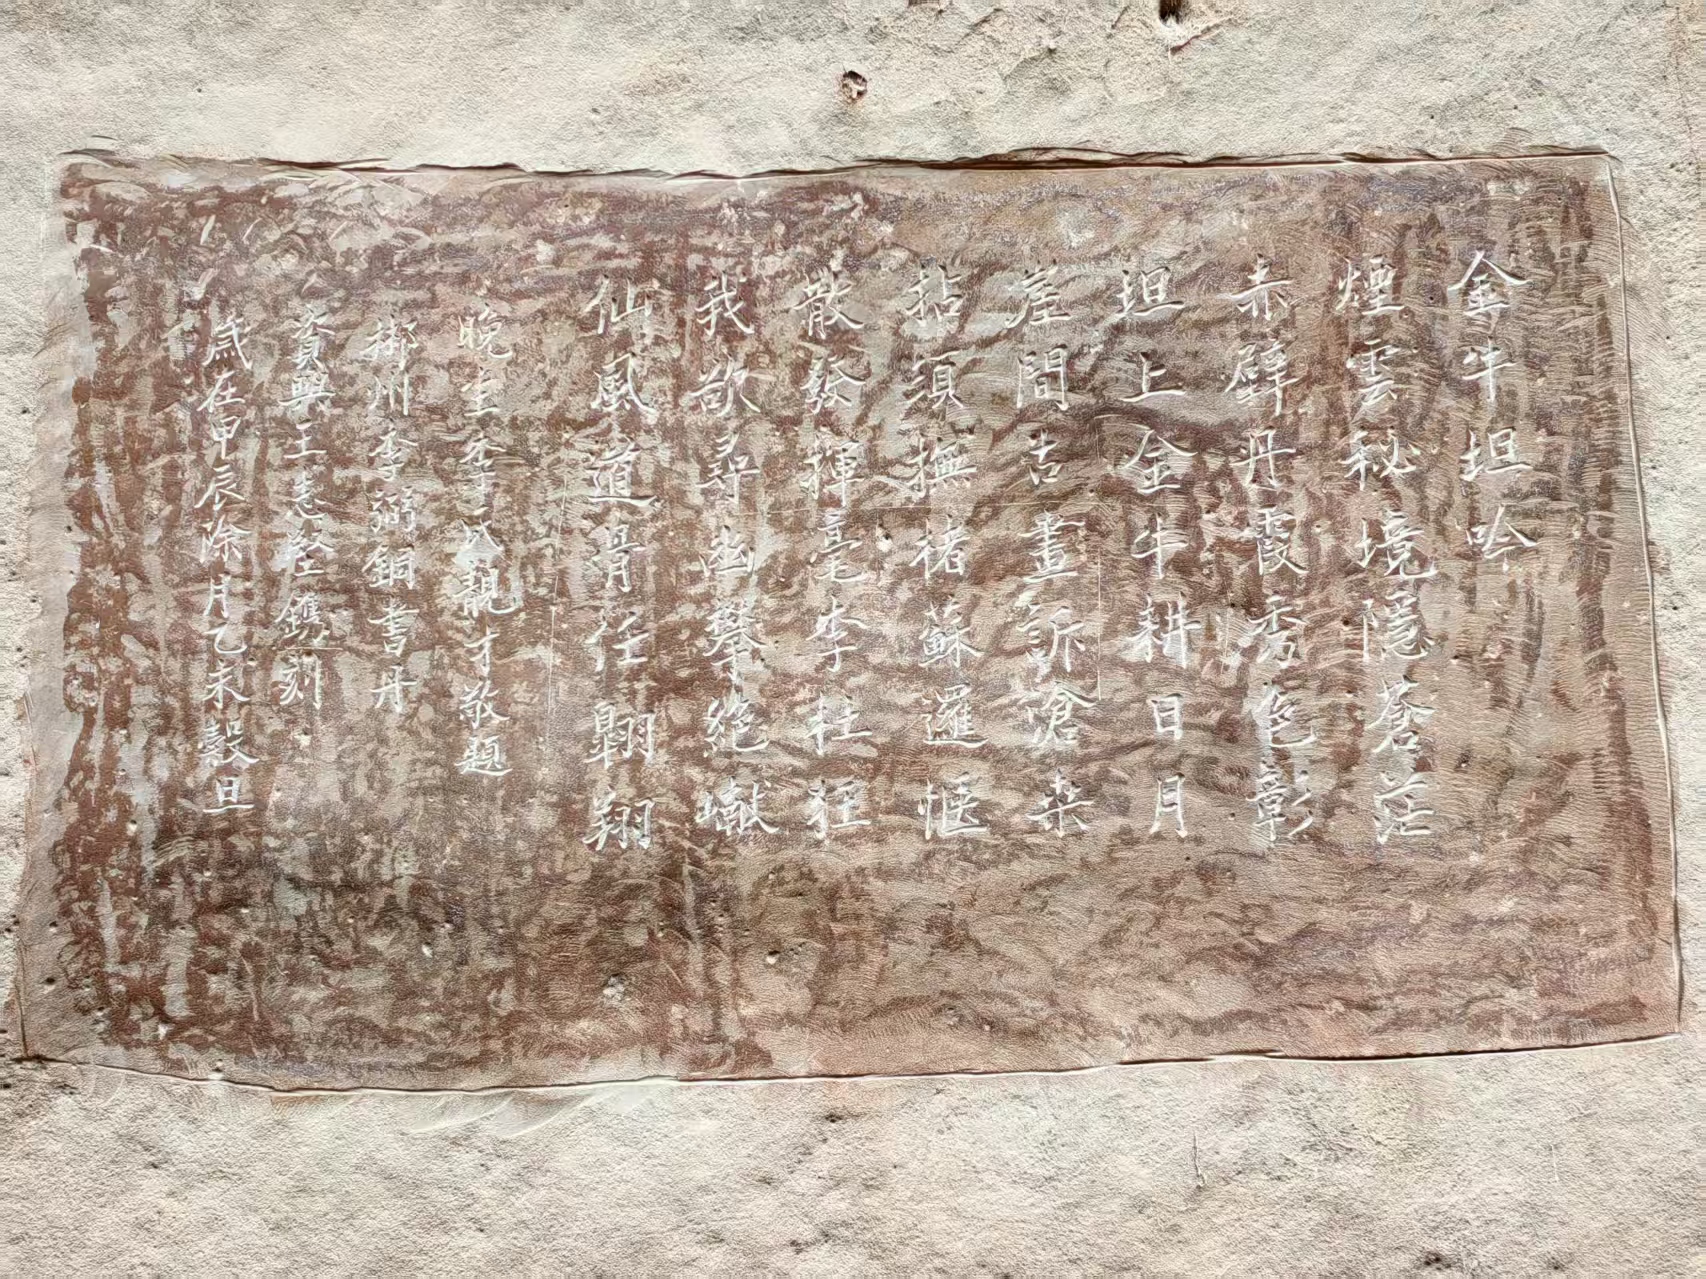 金牛坦吟
煙雲秘境隱蒼茫
赤壁丹霞秀色彰
坦上金牛耕日月
崖間古畫訴滄桒
拈須撫楮蘇邏愜
散發揮毫李杜狂
我欲尋幽攀絶巘
仙風道骨任翺翔
晚生李 親才敬題
郴州李弼銅書丹
資興王憲經鐫刻
歲在甲辰除月乙未穀旦